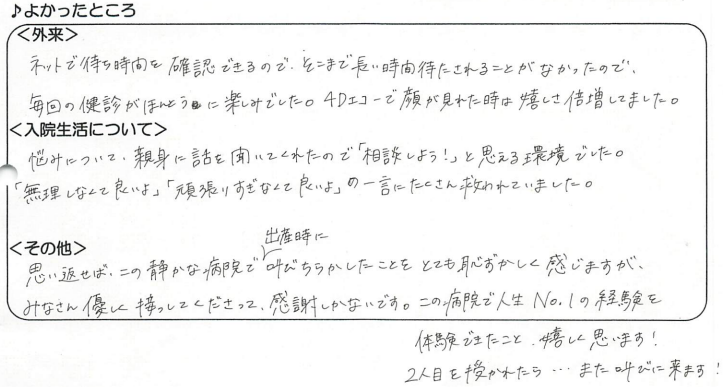 ♪よかったところ
＜外来＞
ネットで待ち時間を確認できるので、そこまで長い時間待たされることがなかったので、
毎回の健診がほんとうに楽しみでした。4Dエコーで顔が見れた時は嬉しさ倍増してました。
＜入院生活について＞
悩みについて、親身に話を聞いてくれたので「相談しよう！」と思える環境でした。
「無理しなくて良いよ」「頑張りすぎなくて良いよ」の一言にたくさん救われていました。
＜その他＞
出産時に
思い返せば、この静かな病院で叫びちらかしたことをとても恥ずかしく感じますが、
みなさん優しく接っしてくださって、感謝しかないです。この病院で人生No.1の経験を
体験できたこと、嬉しく思います！
2人目を授かれたら…また叫びに来ます！